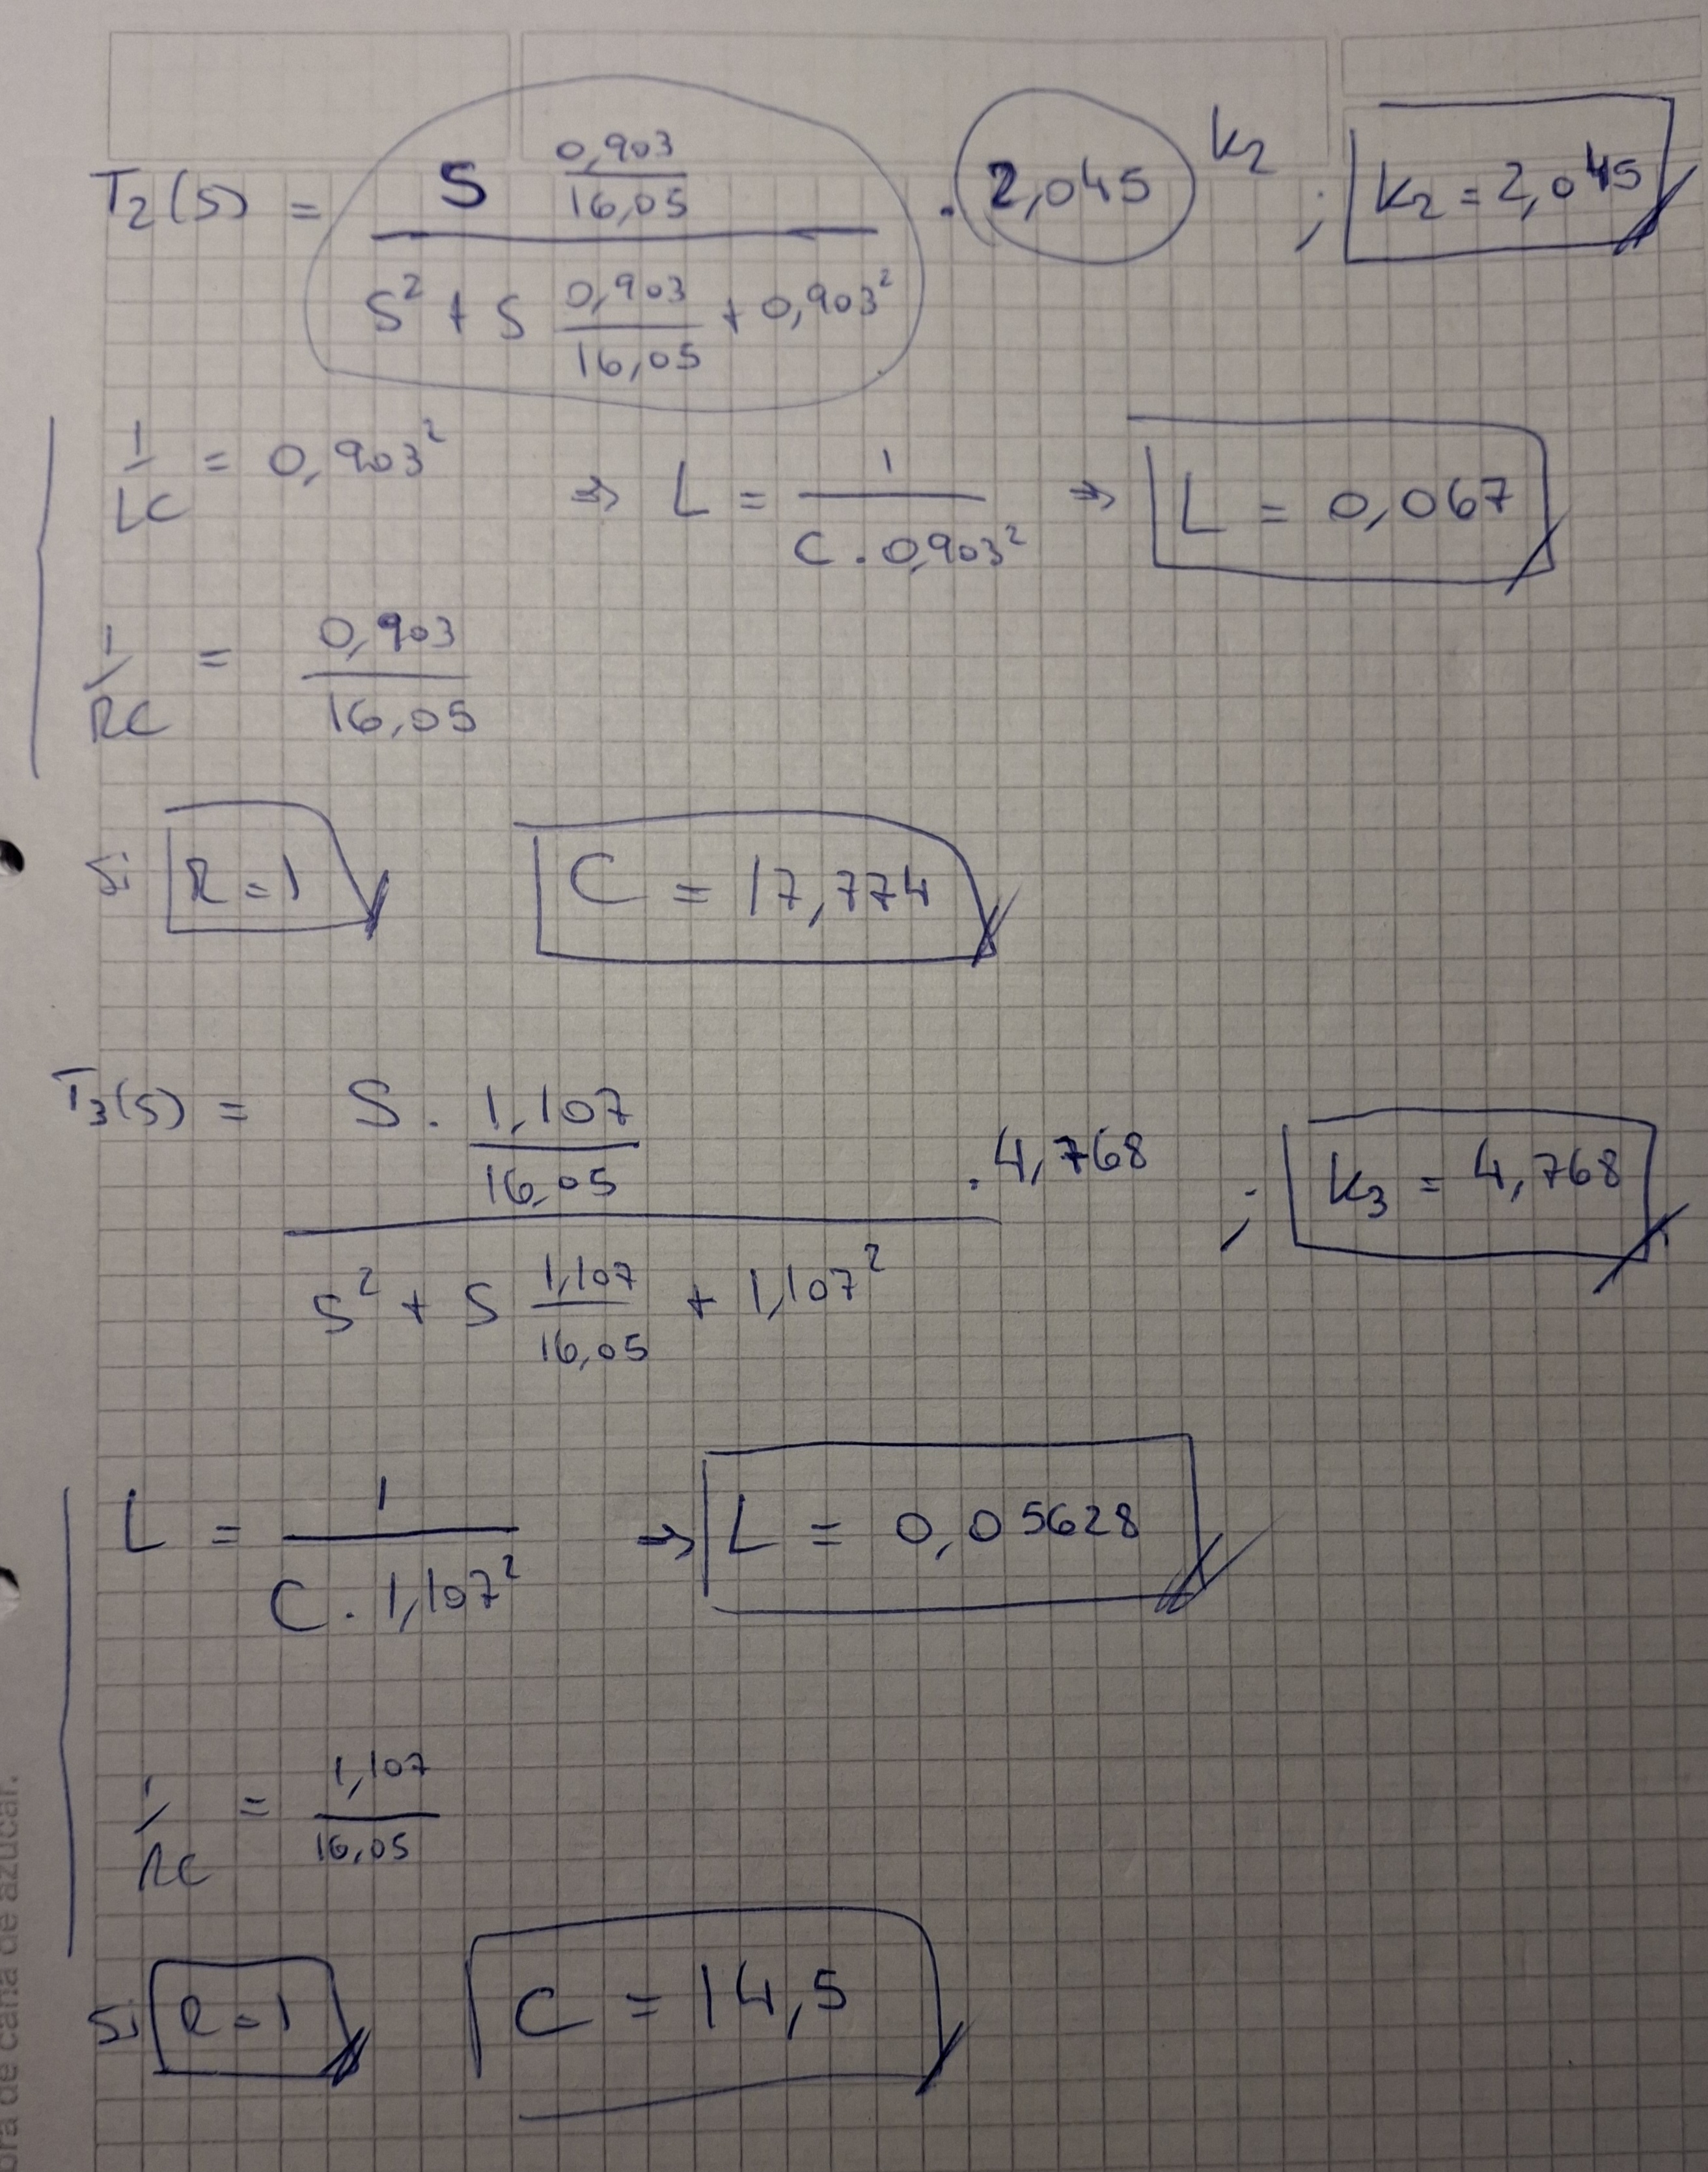 T₂(s) = (S 0,903/16,05) / (S² + S 0,903/16,05 + 0,903²) . 2,045 k₂ ; k₂ = 2,045
1/LC = 0,903² => L = 1/(C . 0,903²) => L = 0,067
1/RC = 0,903/16,05
Si R = 1 C = 17,774
T₃(s) = (S . 1,107/16,05) / (S² + S 1,107/16,05 + 1,107²) . 4,768 ; k₃ = 4,768
L = 1/(C . 1,107²) => L = 0,05628
1/RC = 1,107/16,05
Si R = 1 C = 14,5
bra de caña de azúcar.